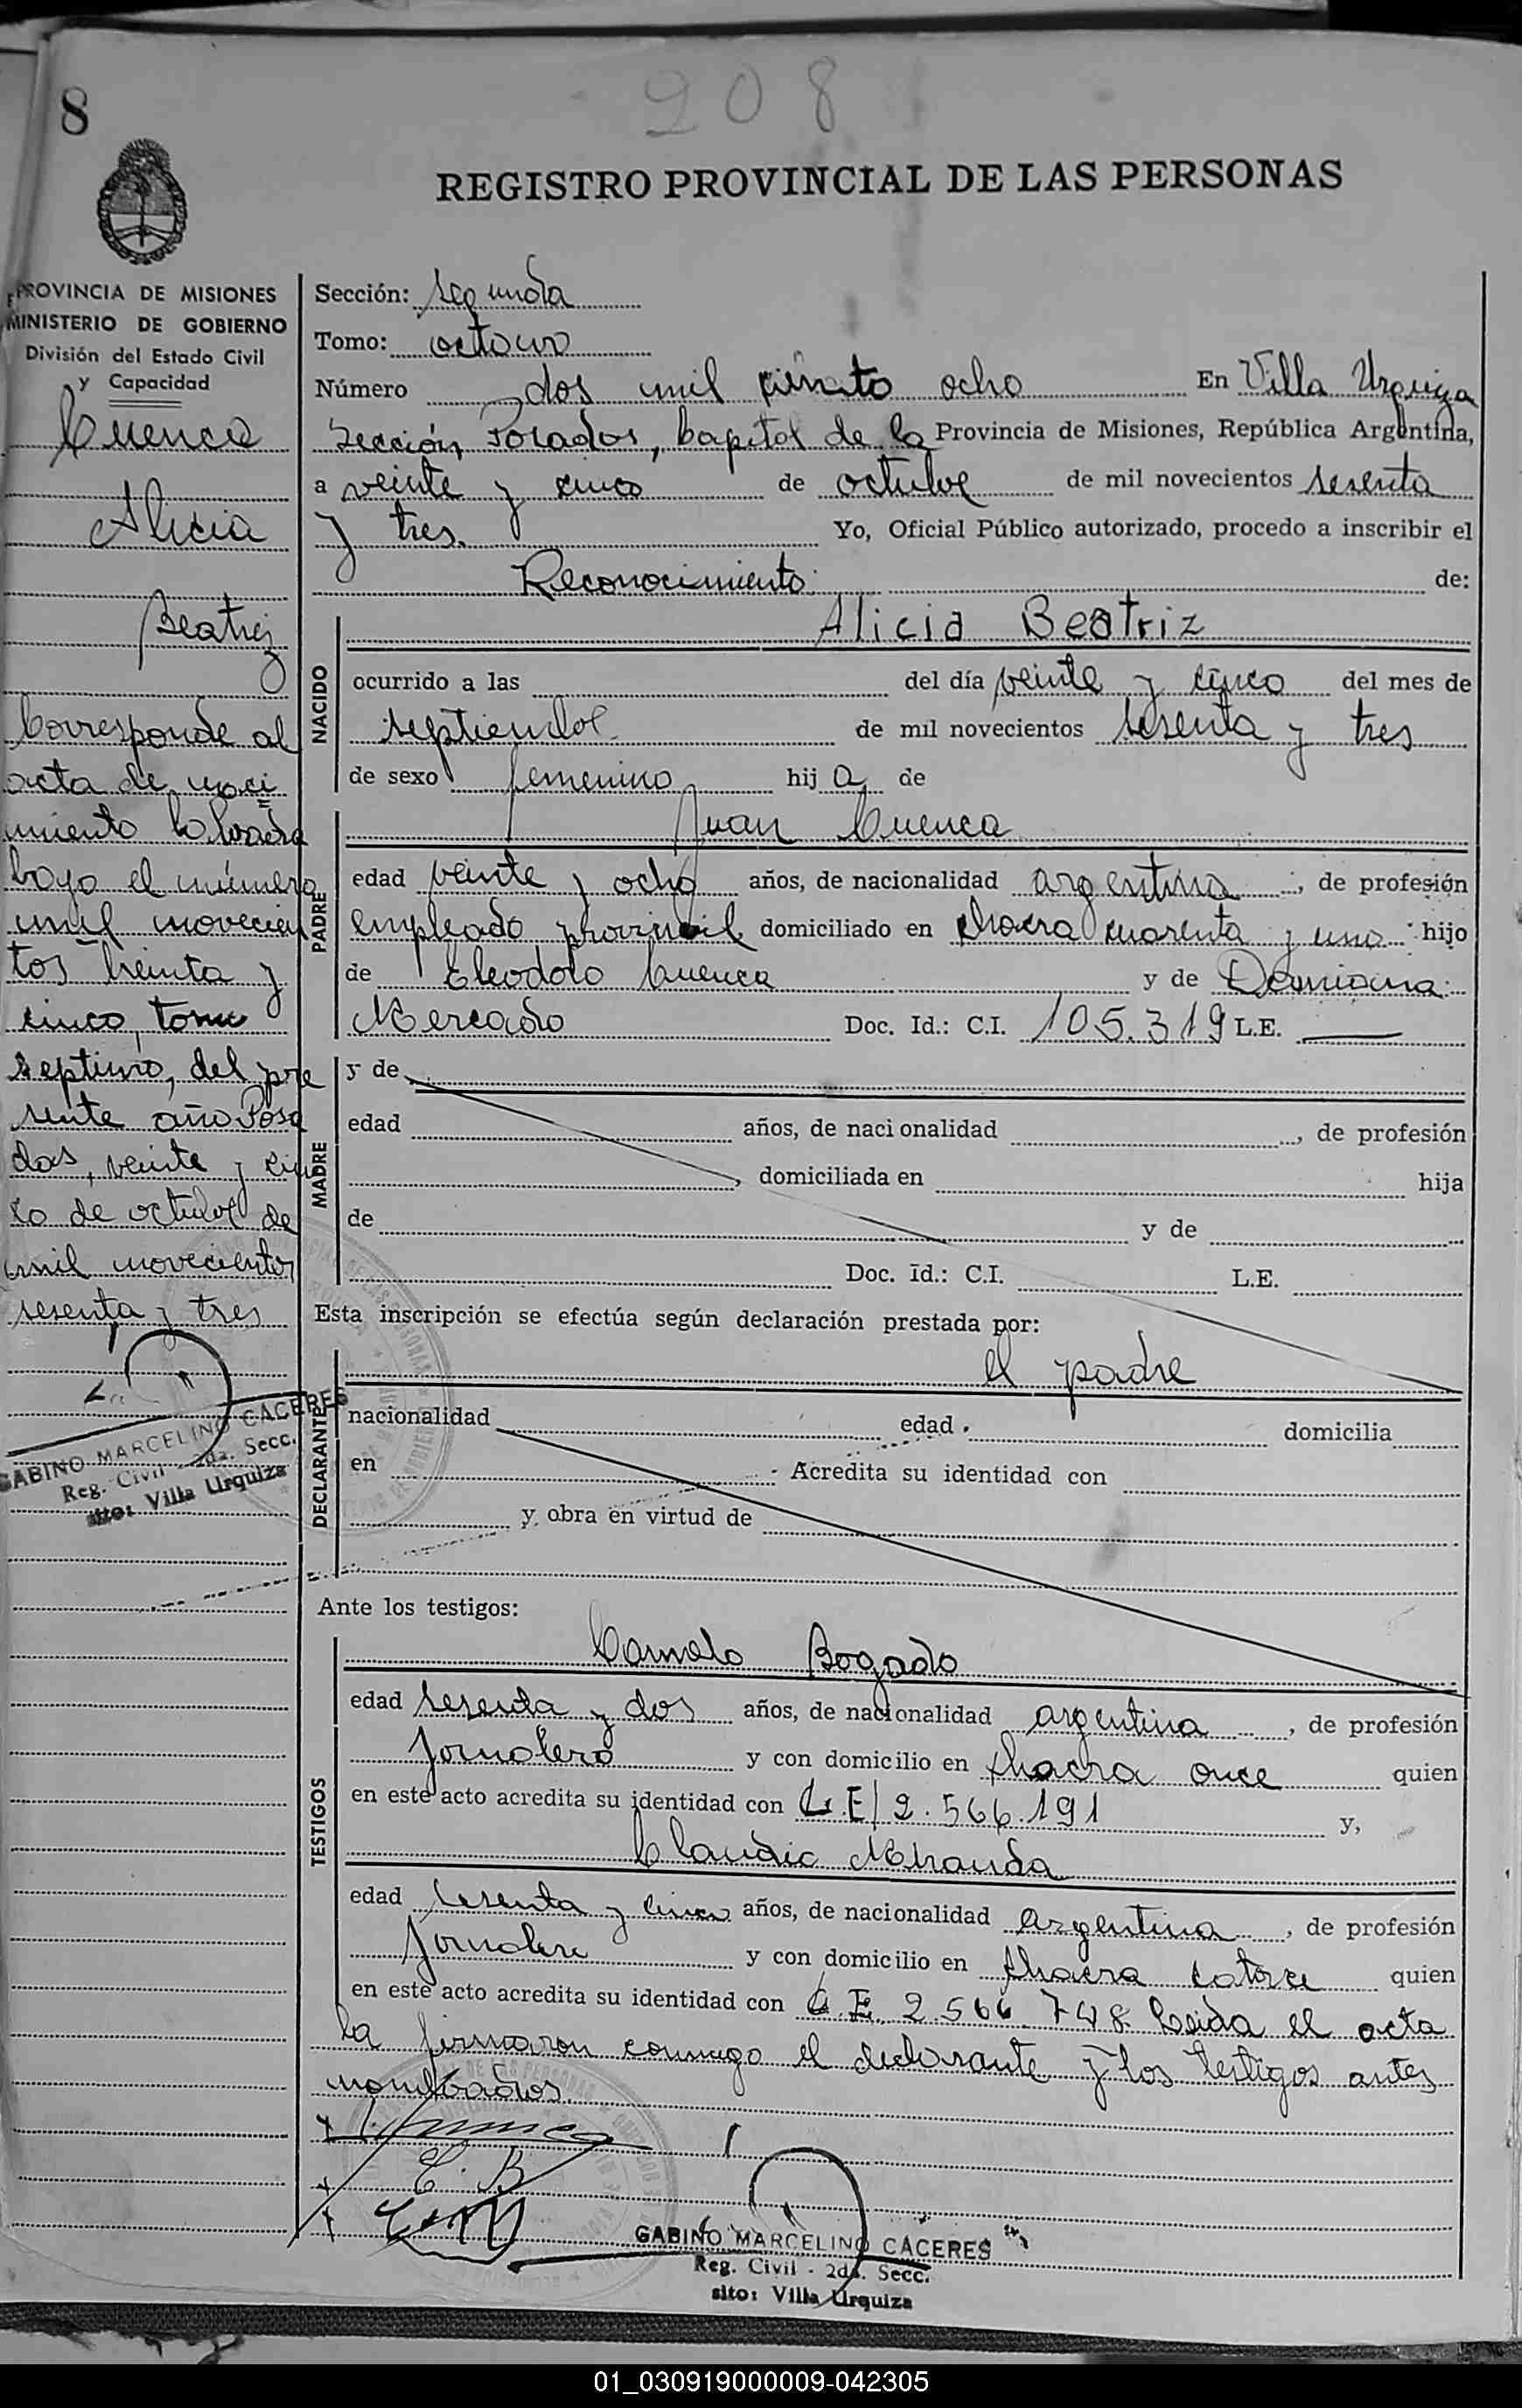 8
208
REGISTRO PROVINCIAL DE LAS PERSONAS
PROVINCIA DE MISIONES
MINISTERIO DE GOBIERNO
División del Estado Civil
y Capacidad
Cuenca
Alicia
Beatriz
Corresponde al
acta de naci
miento labrada
bajo el número
mil novecien
tos treinta y
cinco, tomo
septimo, del pre
sente año Posa
das, veinte y cin
co de octubre de
mil novecientos
sesenta y tres
GABINO MARCELINO CACERES
Reg. Civil - 2da. Secc.
sito: Villa Urquiza
Sección: segunda
Tomo: octavo
Número dos mil ciento ocho En Villa Urquiza
Sección, Posadas, Capital de la Provincia de Misiones, República Argentina,
a veinte y cinco de octubre de mil novecientos sesenta
y tres. Yo, Oficial Público autorizado, procedo a inscribir el
Reconocimiento de:
NACIDO
Alicia Beatriz
ocurrido a las del día veinte y cinco del mes de
septiembre de mil novecientos sesenta y tres
de sexo femenino hij a de
PADRE
Juan Cuenca
edad veinte y ocho años, de nacionalidad argentina, de profesión
empleado provincial domiciliado en chacra cuarenta y uno hijo
de Eleodoro Cuenca y de Damiana
Mercado Doc. Id.: C.I. 105.319 L.E. —
MADRE
y de
edad años, de nacionalidad , de profesión
, domiciliada en hija
de y de
Doc. Id.: C.I. L.E.
Esta inscripción se efectúa según declaración prestada por:
el padre
DECLARANTE
nacionalidad edad domicilia
en Acredita su identidad con
y obra en virtud de
Ante los testigos:
TESTIGOS
Camelo Bogado
edad sesenta y dos años, de nacionalidad argentina, de profesión
Jornalero y con domicilio en chacra once quien
en este acto acredita su identidad con L.E/ 2.566.191 y,
Claudio Miranda
edad sesenta y cinco años, de nacionalidad argentina, de profesión
Jornalero y con domicilio en chacra catorce quien
en este acto acredita su identidad con L.E. 2.566.748. Leida el acta
la firmaron conmigo el declarante y los testigos antes
nombrados.
C. B
GABINO MARCELINO CACERES
Reg. Civil - 2da. Secc.
sito: Villa Urquiza
01_030919000009-042305